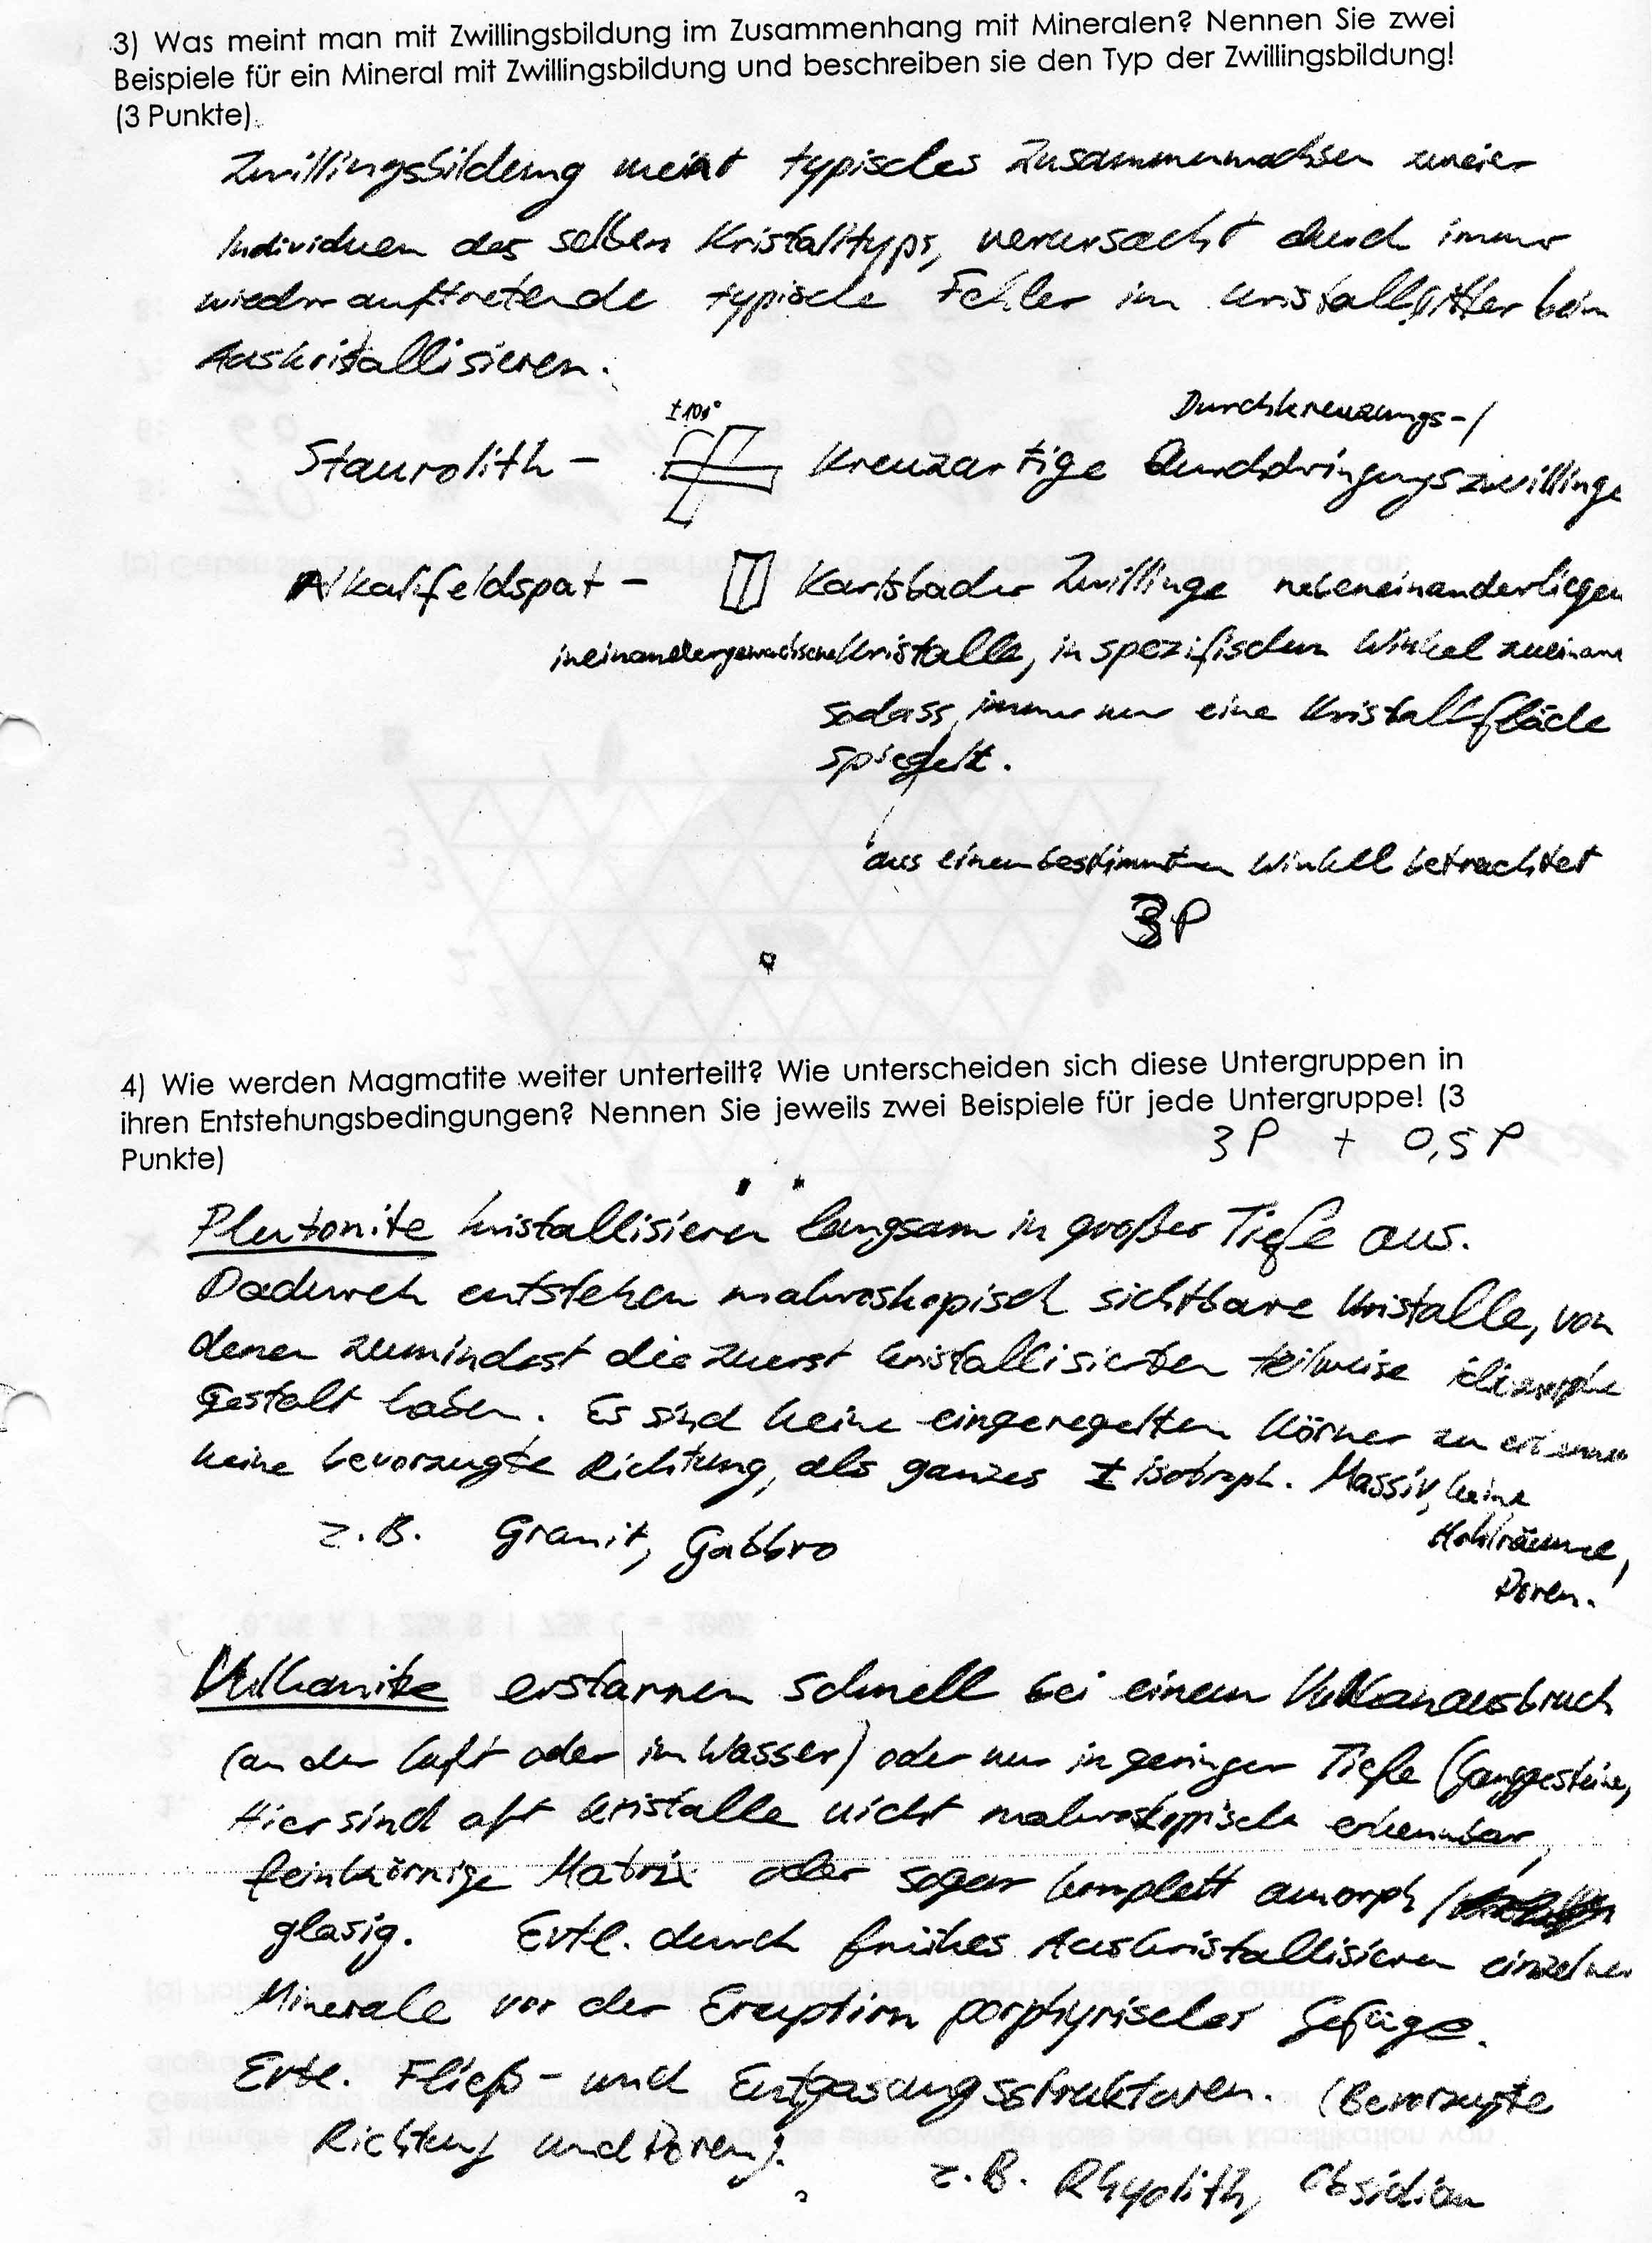 3) Was meint man mit Zwillingsbildung im Zusammenhang mit Mineralen? Nennen Sie zwei
Beispiele für ein Mineral mit Zwillingsbildung und beschreiben sie den Typ der Zwillingsbildung!
(3 Punkte)
Zwillingsbildung meint typisches Zusammenwachsen zweier
Individuen des selben Kristalltyps, verursacht durch immer
wieder auftretende typische Fehler im Kristallgitter beim
Auskristallisieren.
±100°
Durchkreuzungs-/
Staurolith – Kreuzartige Durchdringungszwillinge
Alkalifeldspat – Karlsbader Zwillinge nebeneinanderliegen
ineinandergewachsene Kristalle, in spezifischen Winkel zueinand
sodass immer nur eine Kristallfläche
spiegelt.
aus einem bestimmten Winkel betrachtet
3P
4) Wie werden Magmatite weiter unterteilt? Wie unterscheiden sich diese Untergruppen in
ihren Entstehungsbedingungen? Nennen Sie jeweils zwei Beispiele für jede Untergruppe! (3
Punkte)
3P + 0,5P
Plutonite kristallisieren langsam in großer Tiefe aus.
Dadurch entstehen makroskopisch sichtbare Kristalle, von
denen zumindest die zuerst kristallisierten teilweise idiomorphe
Gestalt haben. Es sind keine eingeregelten Körner zu erkennen
keine bevorzugte Richtung, als ganzes ± isotroph. Massiv, keine
Hohlräume,
Poren.
z.B. Granit, Gabbro
Vulkanite erstarren schnell bei einem Vulkanausbruch
(an der Luft oder im Wasser) oder nur in geringer Tiefe (Ganggesteine)
Hier sind oft Kristalle nicht makroskopisch erkennbar,
feinkörnige Matrix oder sogar komplett amorph /
glasig. Evtl. durch frühes Auskristallisieren einzelner
Minerale vor der Eruption porphyrisches Gefüge.
Evtl. Fließ- und Entgasungsstrukturen. (Bevorzugte
Richtung und Poren).
z.B. Rhyolith, Obsidian